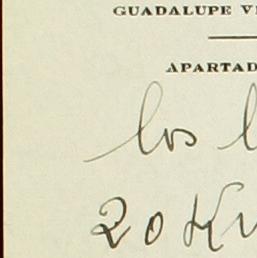 GUADALUPE V
APARTAD
los l
20 K